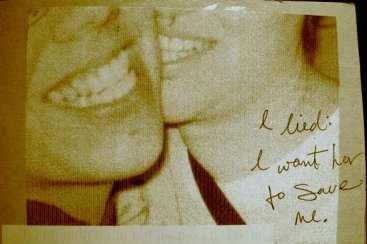 I lied:
I want her
to save
me.